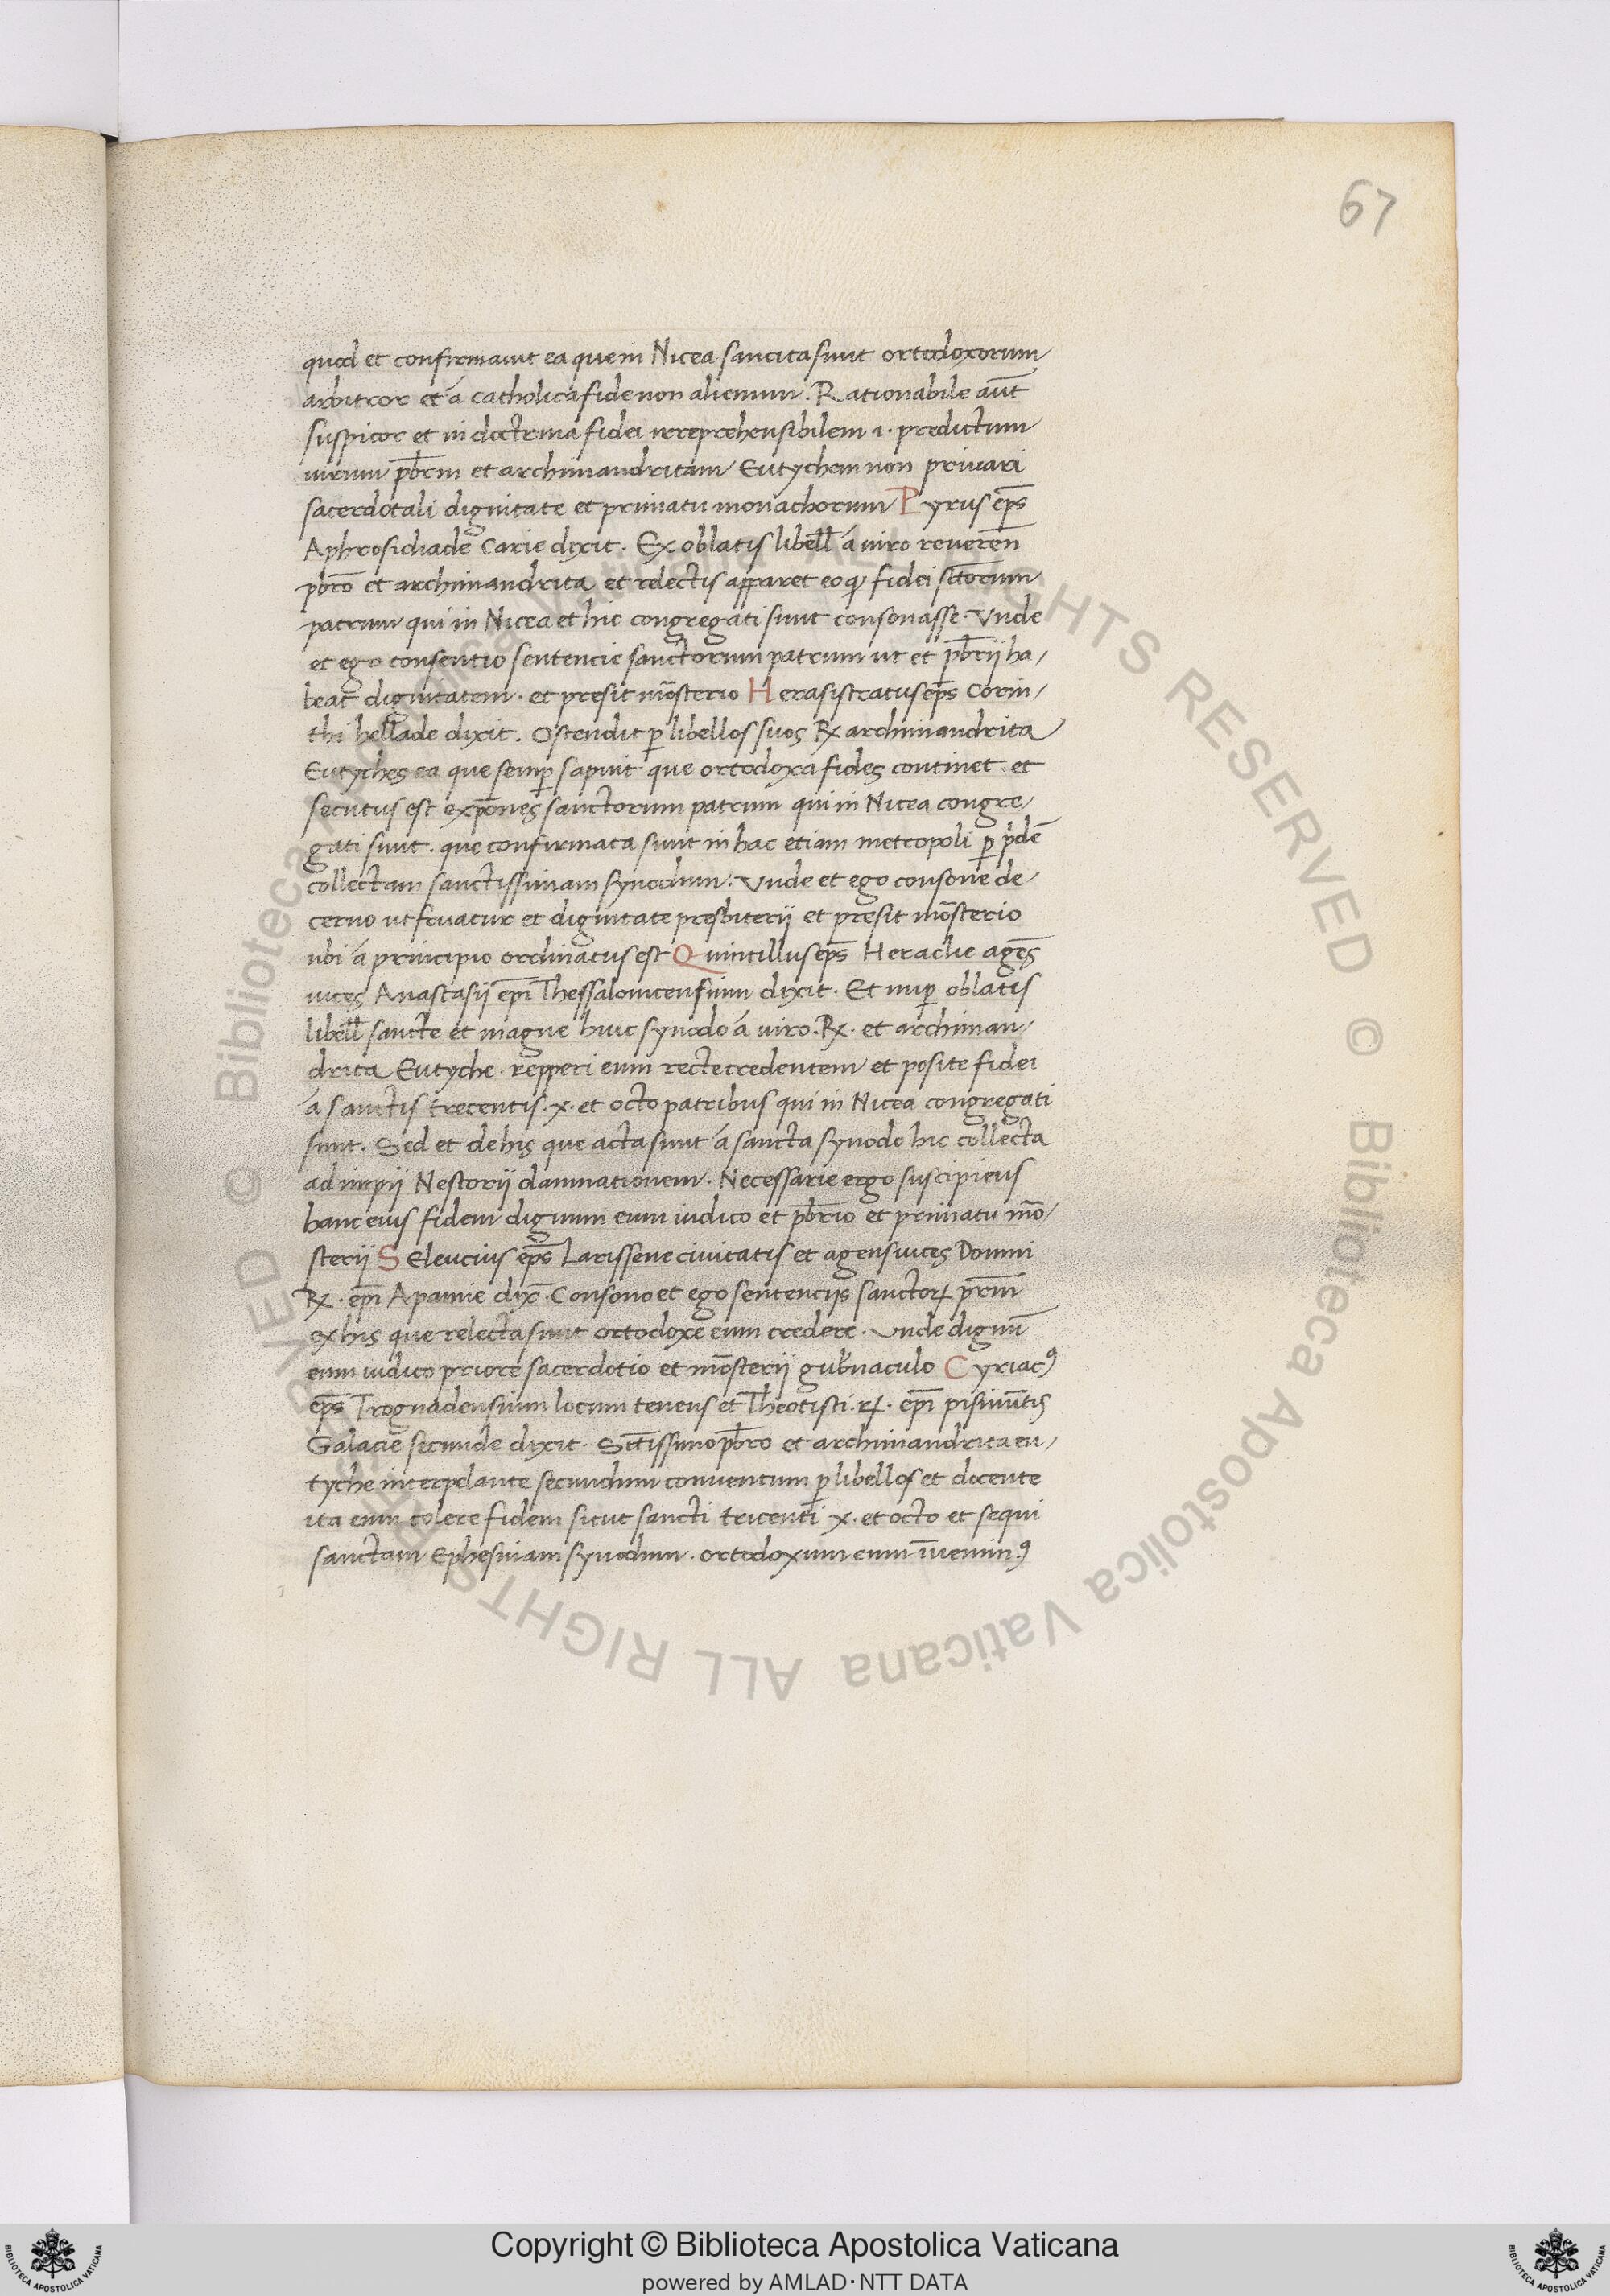 67
quod et confirmauit ea que in Nicea sancita sunt ortodoxorum
arbitror et á catholica fide non alienum. Rationabile aut̄
suspicor et in doctrina fidei irreprehensibilem ı. predictum
uirum pb̄rm et archimandritam Eutychem non priuari
sacerdotali dignitate et primatu monachorum Pyrus ep̄s
Aphrosidiade Carie dixit. Ex oblatis libell̄ á uiro reueren̄
pb̄ro et archimandrita et relectis apparet eoꝙ fidei sc̄torum
patrum qui in Nicea et hic congregati sunt consonasse. Vnde
et ego consentio sentencie sanctorum patrum ut et pb̄rij ha/
beat dignitatem. et presit mōsterio Herasistratus ep̄s Corin/
thi hellade dixit. Ostendit ꝑ libellos suos R̨ archimandrita
Eutyches ea que semꝑ sapuit que ortodoxa fides continet. et
secutus est exp̄ones sanctorum patrum qui in Nicea congre/
gati sunt. que confirmata sunt in hac etiam metropoli ꝑ p̄idē
collectam sanctissimam synodum. Vnde et ego consone de/
cerno ut fruatur et dignitate presbiterij et presit mōsterio
ubi á principio ordinatus est Quintillus ep̄s Heraclie agēs
uices Anastasij ep̄i Thessalonicensium dixit. Et nuꝑ oblatis
libell̄ sancte et magne huic synodo á uiro. R̨. et archiman/
drita Eutyche. repperi eum recte credentem et posite fidei
á sanctis trecentis. x. et octo patribus qui in Nicea congregati
sunt. Sed et de his que acta sunt á sancta synodo hic collecta
ad impij Nestorij damnationem. Necessarie ergo suscipiens
hanc eius fidem dignum eum iudico et pb̄rio et primatu mō/
sterij Seleucius ep̄s Larissene ciuitatis et agens uices Domni
R̨. ep̄i Apamie dix̄. Consono et ego sentencijs sanctoꝝ pr̄m
ex his que relecta sunt ortodoxe eum credere. Vnde dignū
eum iudico priore sacerdotio et mōsterij gub̄naculo Cyriacꝰ
ep̄s Trognadensium locum tenens et Theotisti. r̨. ep̄i pisinūtis
Galacie secunde dixit. Sc̄tissimo pb̄ro et archimandrita eu/
tyche interpelante secundum conuentum ꝑ libellos et docente
ita eum colere fidem sicut sancti tricenti x. et octo et sequi
sanctam Ephesinam synodum. ortodoxum eum īuenimꝰ
© Biblioteca Apostolica Vaticana ALL RIGHTS RESERVED © Biblioteca Apostolica Vaticana ALL RIGHTS RESERVED
Copyright © Biblioteca Apostolica Vaticana
powered by AMLAD·NTT DATA
BIBLIOTECA APOSTOLICA VATICANA
BIBLIOTECA APOSTOLICA VATICANA